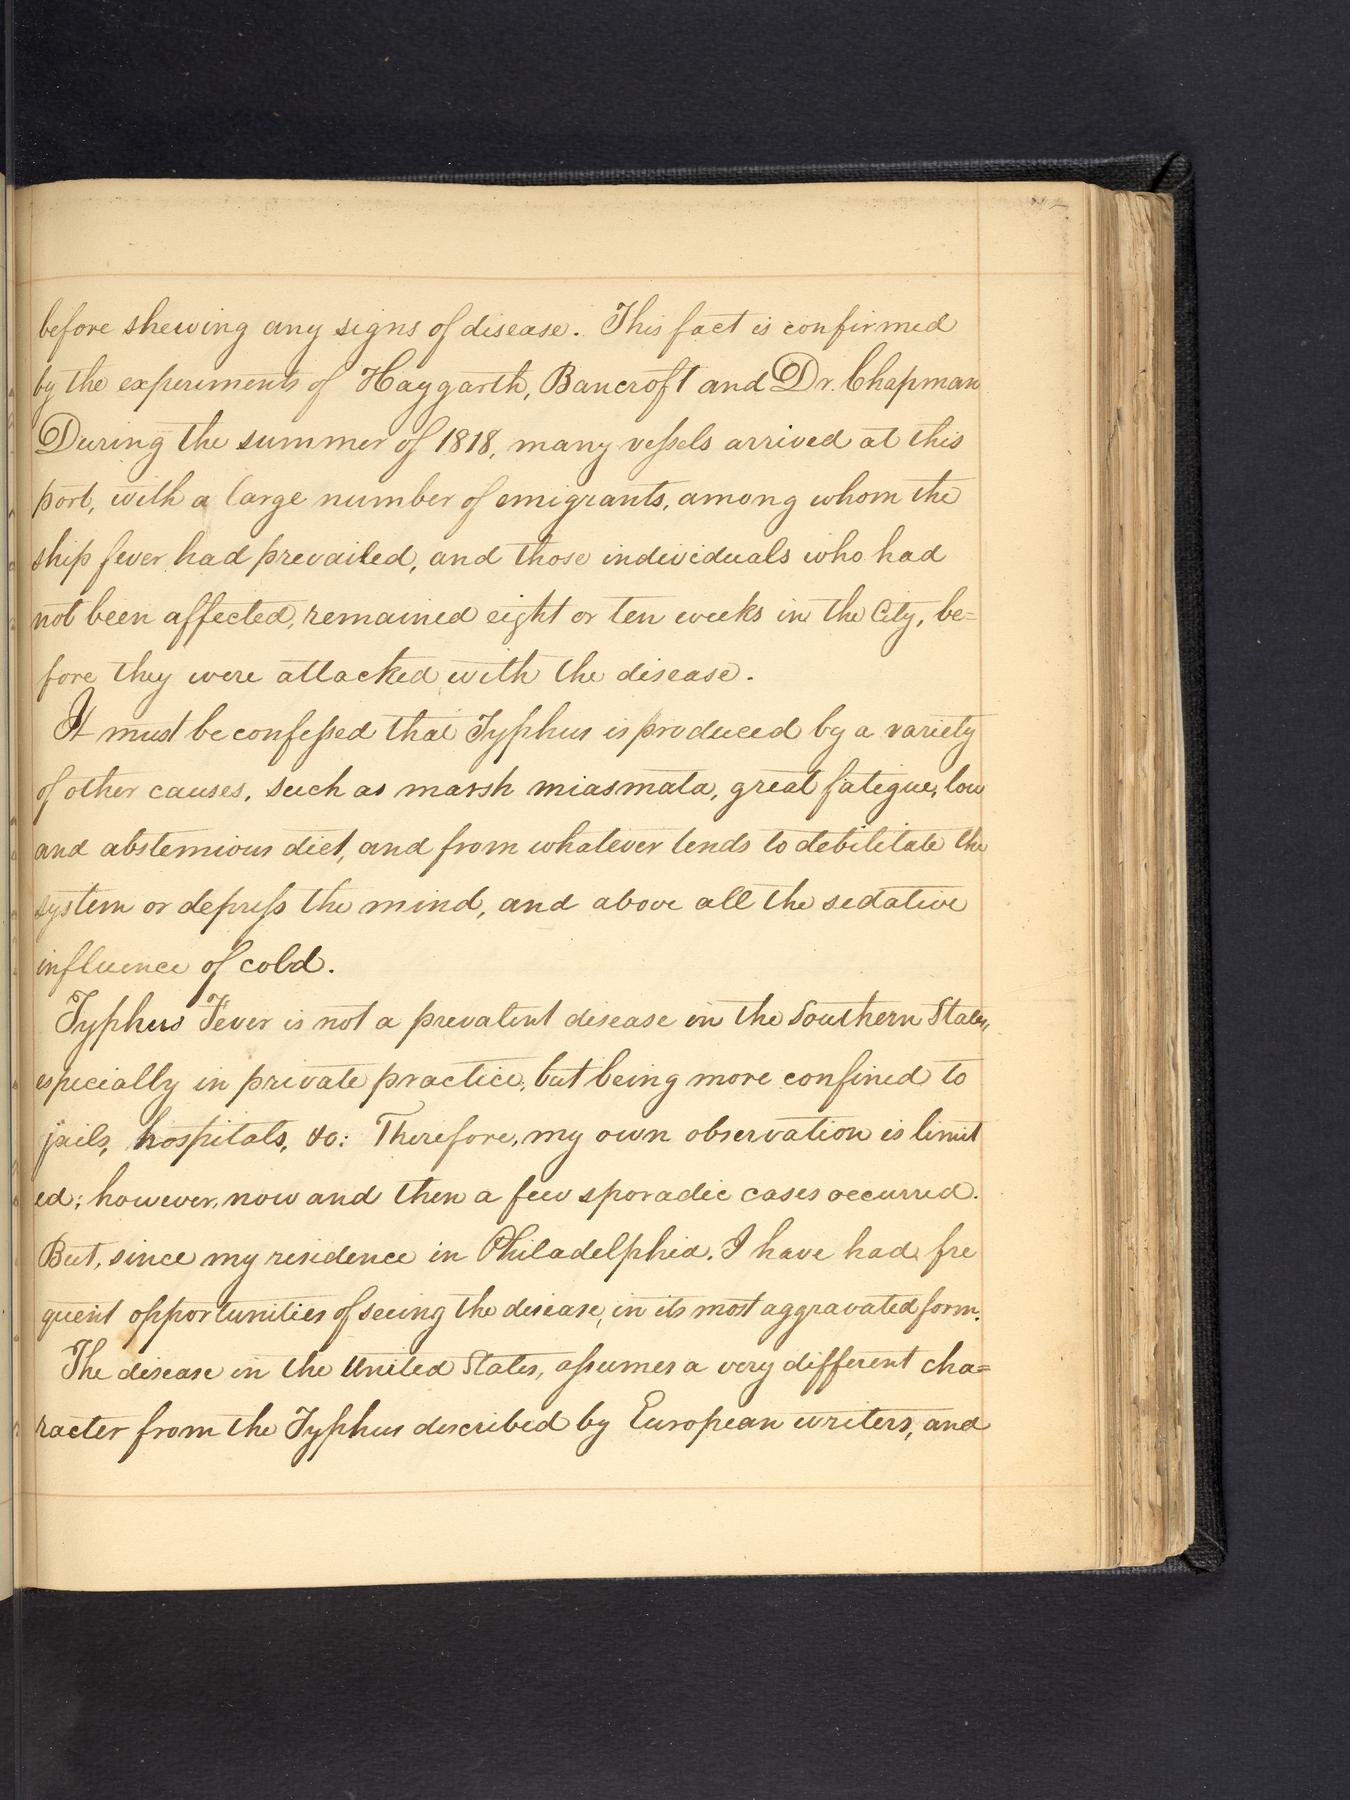 before shewing any signs of disease. This fact is confirmed
by the experiments of Haygarth, Bancroft and Dr. Chapman
During the summer of 1818, many vessels arrived at this
port, with a large number of emigrants, among whom the
ship fever had prevailed, and those individuals who had
not been affected, remained eight or ten weeks in the City, be=
fore they were attacked with the disease.
It must be confessed that Typhus is produced by a variety
of other causes, such as marsh miasmata, great fatigue, low
and abstemious diet, and from whatever tends to debilitate the
system or depress the mind, and above all the sedative
influence of cold.
Typhus Fever is not a prevalent disease in the Southern States,
especially in private practice, but being more confined to
jails, hospitals, &c: Therefore, my own observation is limit
ed; however, now and then a few sporadic cases occurred.
But, since my residence in Philadelphia, I have had fre
quent opportunities of seeing the disease, in its most aggravated form.
The disease in the United States, assumes a very different cha=
racter from the Typhus described by European writers, and